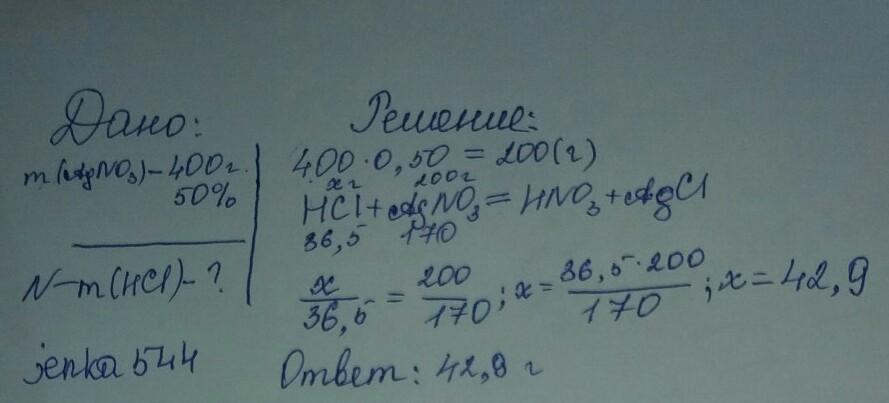 Дано:
m(AgNO3)-400г.
50%
N-m(HCl)-?
jenka 544
Решение:
400·0,50=200(г)
xг 200г
HCl+AgNO3=HNO3+AgCl
36,5 170
x/36,5=200/170; x=36,5·200/170; x=42,9
Ответ: 42,9 г